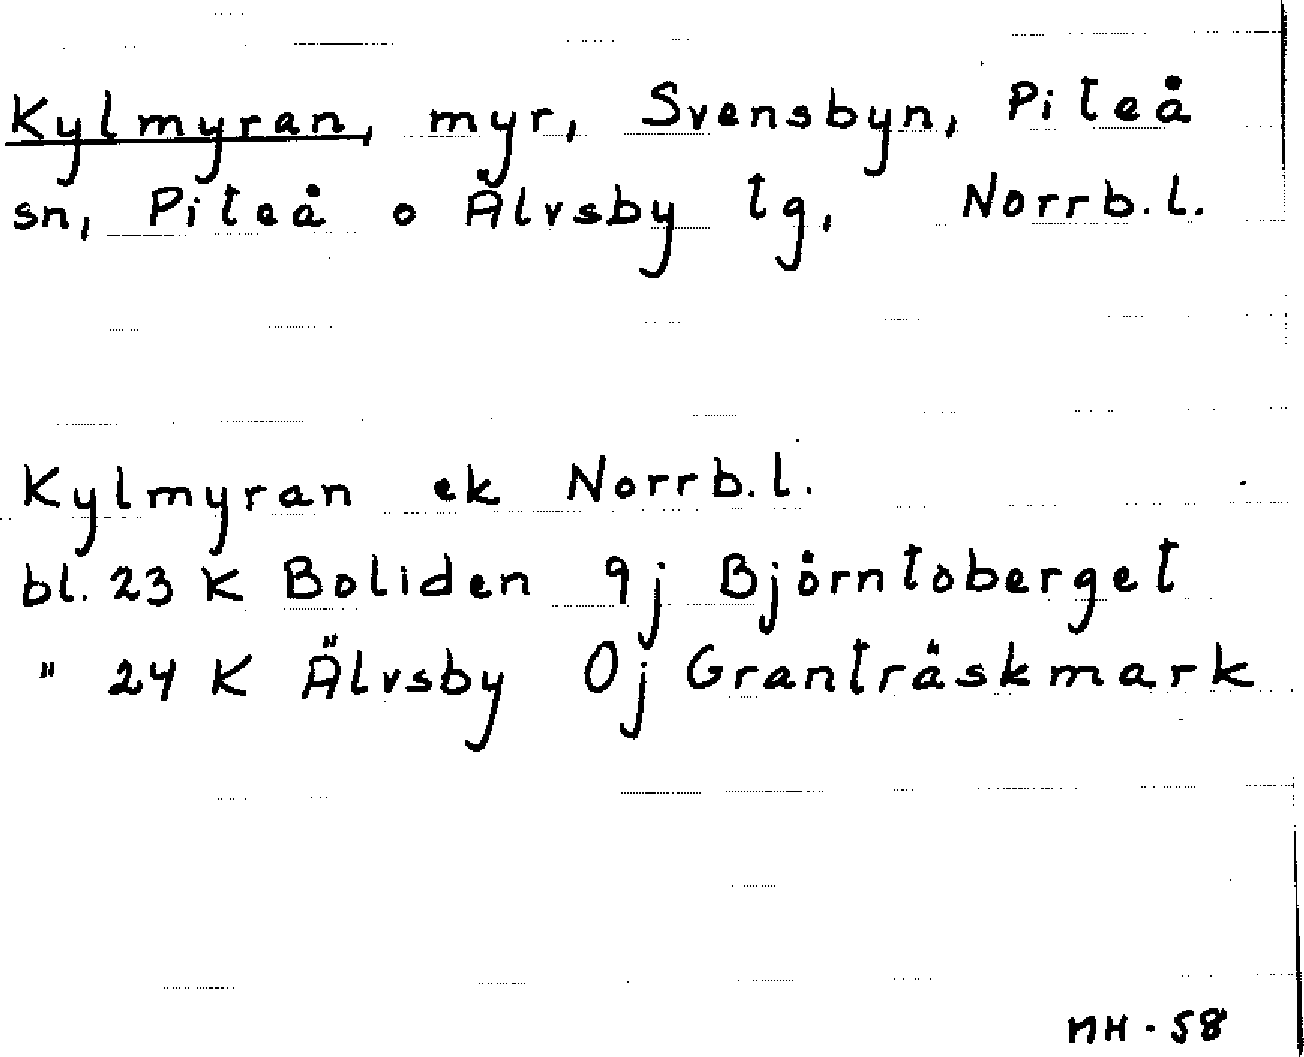 Kylmyran, myr, Svensbyn, Piteå
sn, Piteå o Älvsby tg, Norrb.l.
Kylmyran ek Norrb.l.
bl. 23 K Boliden 9j Björntoberget
" 24 K Älvsby 0j Granträskmark
MH-58